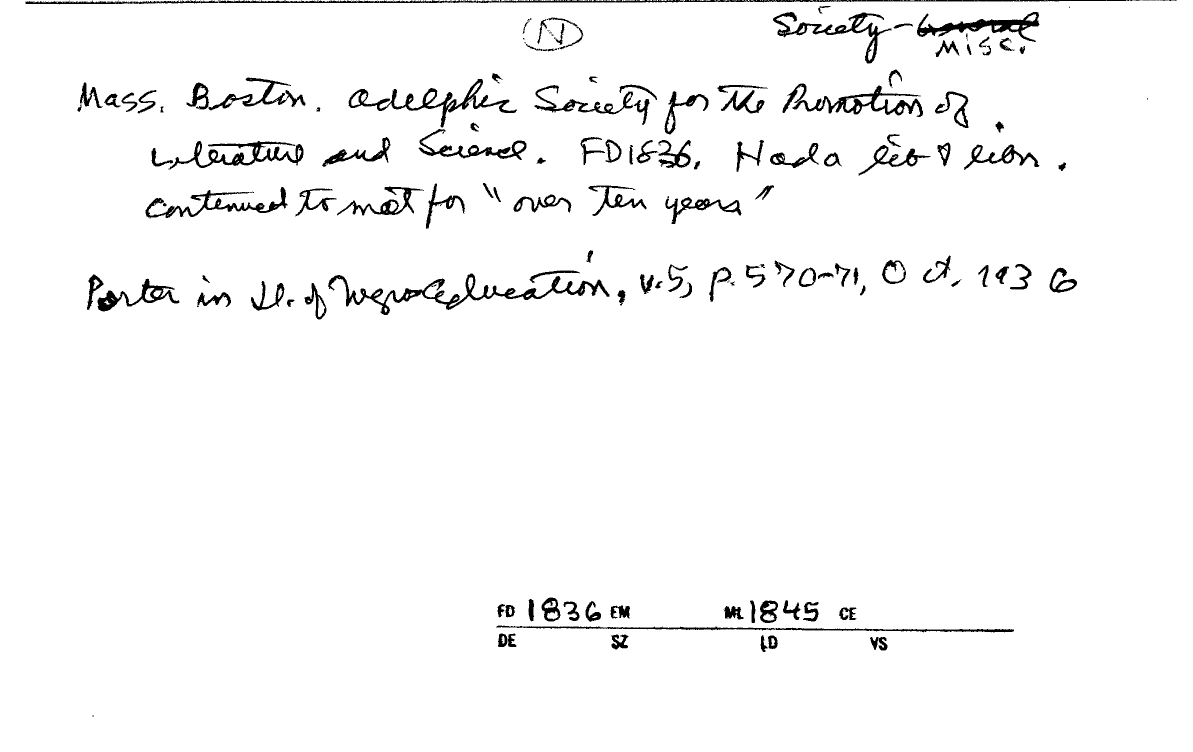 (N) Society - General
Misc.
Mass. Boston. Adelphic Society for the Promotion of
Literature and Science. FD1836. Had a lib
continued to meet for "over ten years"
Porter in Jl. of Negro Education, v.5, p.570-71, Oct. 1936
FD 1836 EM ML 1845 CE
DE SZ LD VS